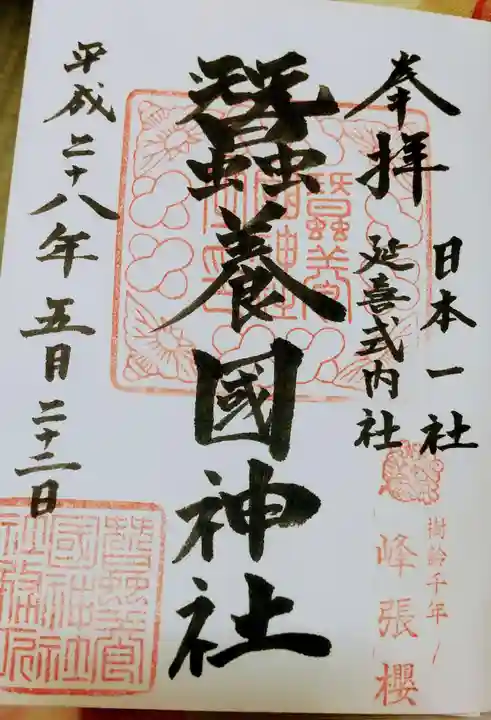 奉拝
日本一社
延喜式内社
樹齢千年
峰張櫻
蠶養國神社
平成二十八年五月二十二日